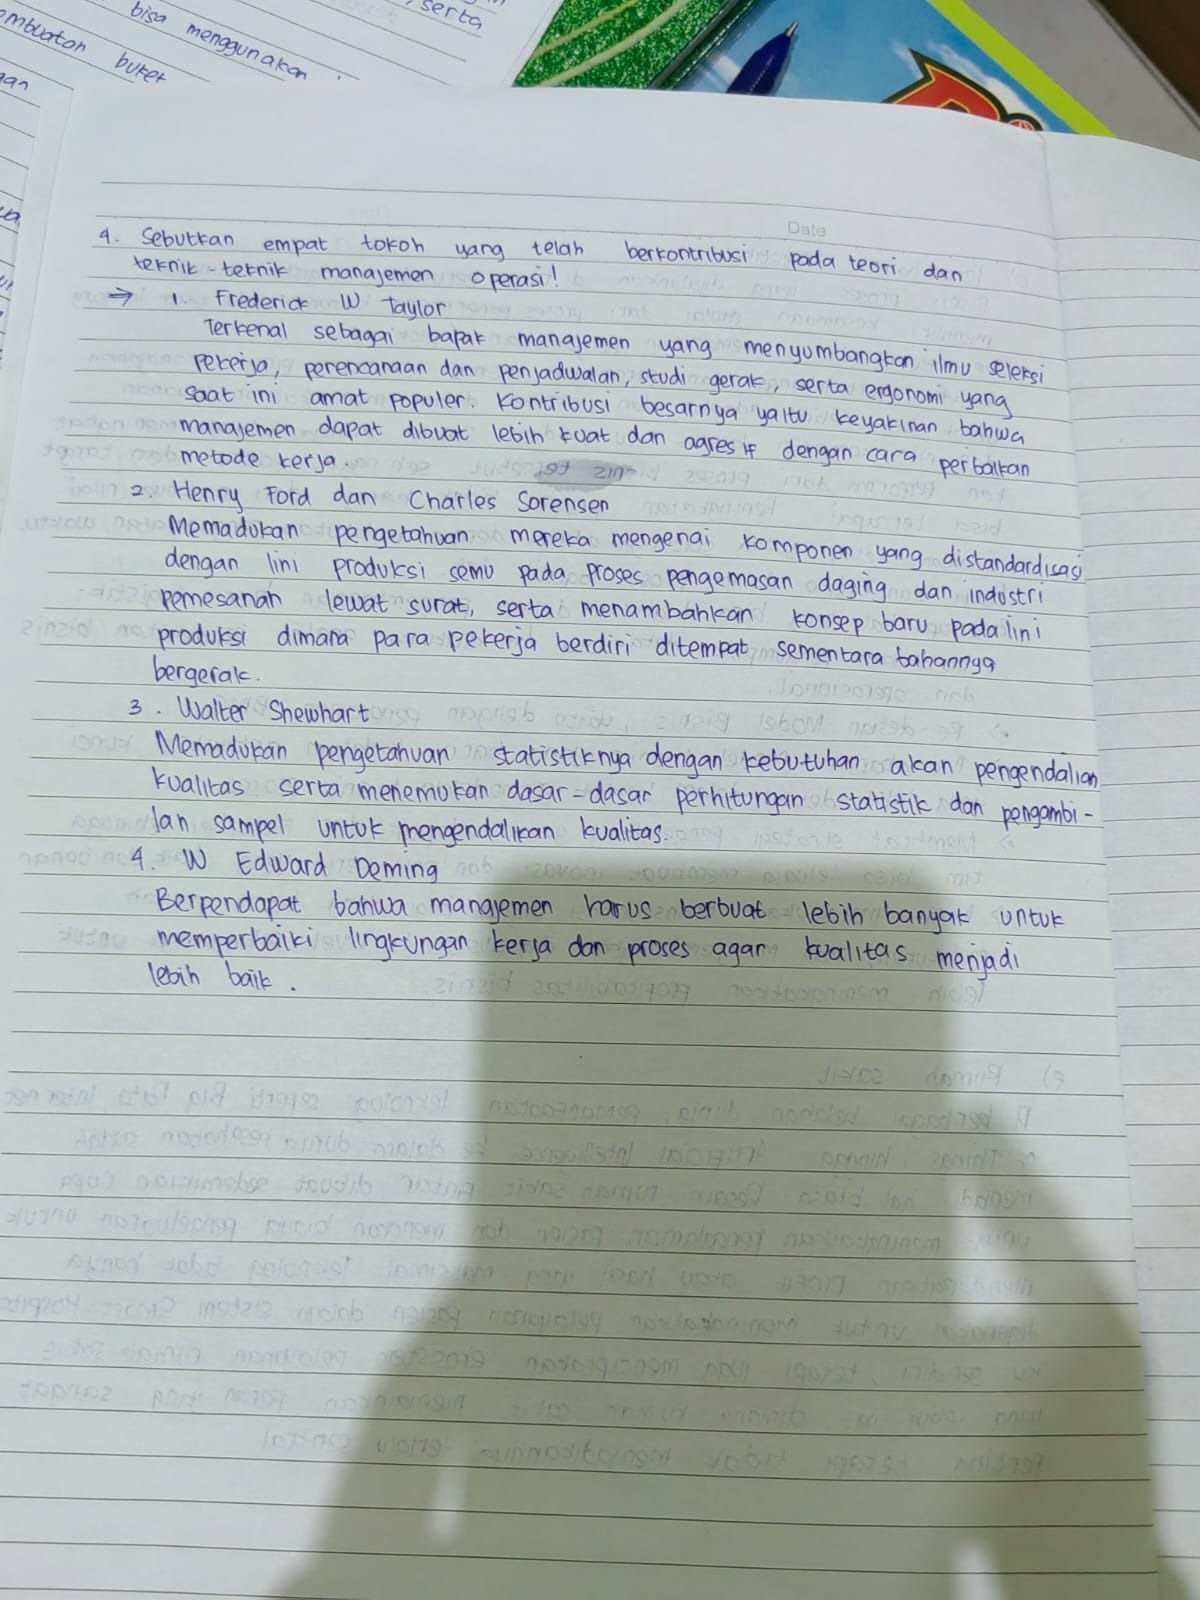 , serta
bisa menggunakan
embuatan buket
gan
Date
4. Sebutkan empat tokoh yang telah berkontribusi pada teori dan
teknik-teknik manajemen operasi!
→ 1. Frederick W Taylor
Terkenal sebagai bapak manajemen yang menyumbangkan ilmu seleksi
pekerja, perencanaan dan penjadwalan, studi gerak, serta ergonomi yang
saat ini amat populer. Kontribusi besarnya yaitu keyakinan bahwa
manajemen dapat dibuat lebih kuat dan agresif dengan cara perbaikan
metode kerja.
2. Henry Ford dan Charles Sorensen
Memadukan pengetahuan mereka mengenai komponen yang distandardisasi
dengan lini produksi semu pada proses pengemasan daging dan industri
pemesanan lewat surat, serta menambahkan konsep baru pada lini
produksi dimana para pekerja berdiri ditempat sementara bahannya
bergerak.
3. Walter Shewhart
Memadukan pengetahuan statistiknya dengan kebutuhan akan pengendalian
kualitas serta menemukan dasar-dasar perhitungan statistik dan pengambi-
lan sampel untuk mengendalikan kualitas.
4. W Edward Deming
Berpendapat bahwa manajemen harus berbuat lebih banyak untuk
memperbaiki lingkungan kerja dan proses agar kualitas menjadi
lebih baik.